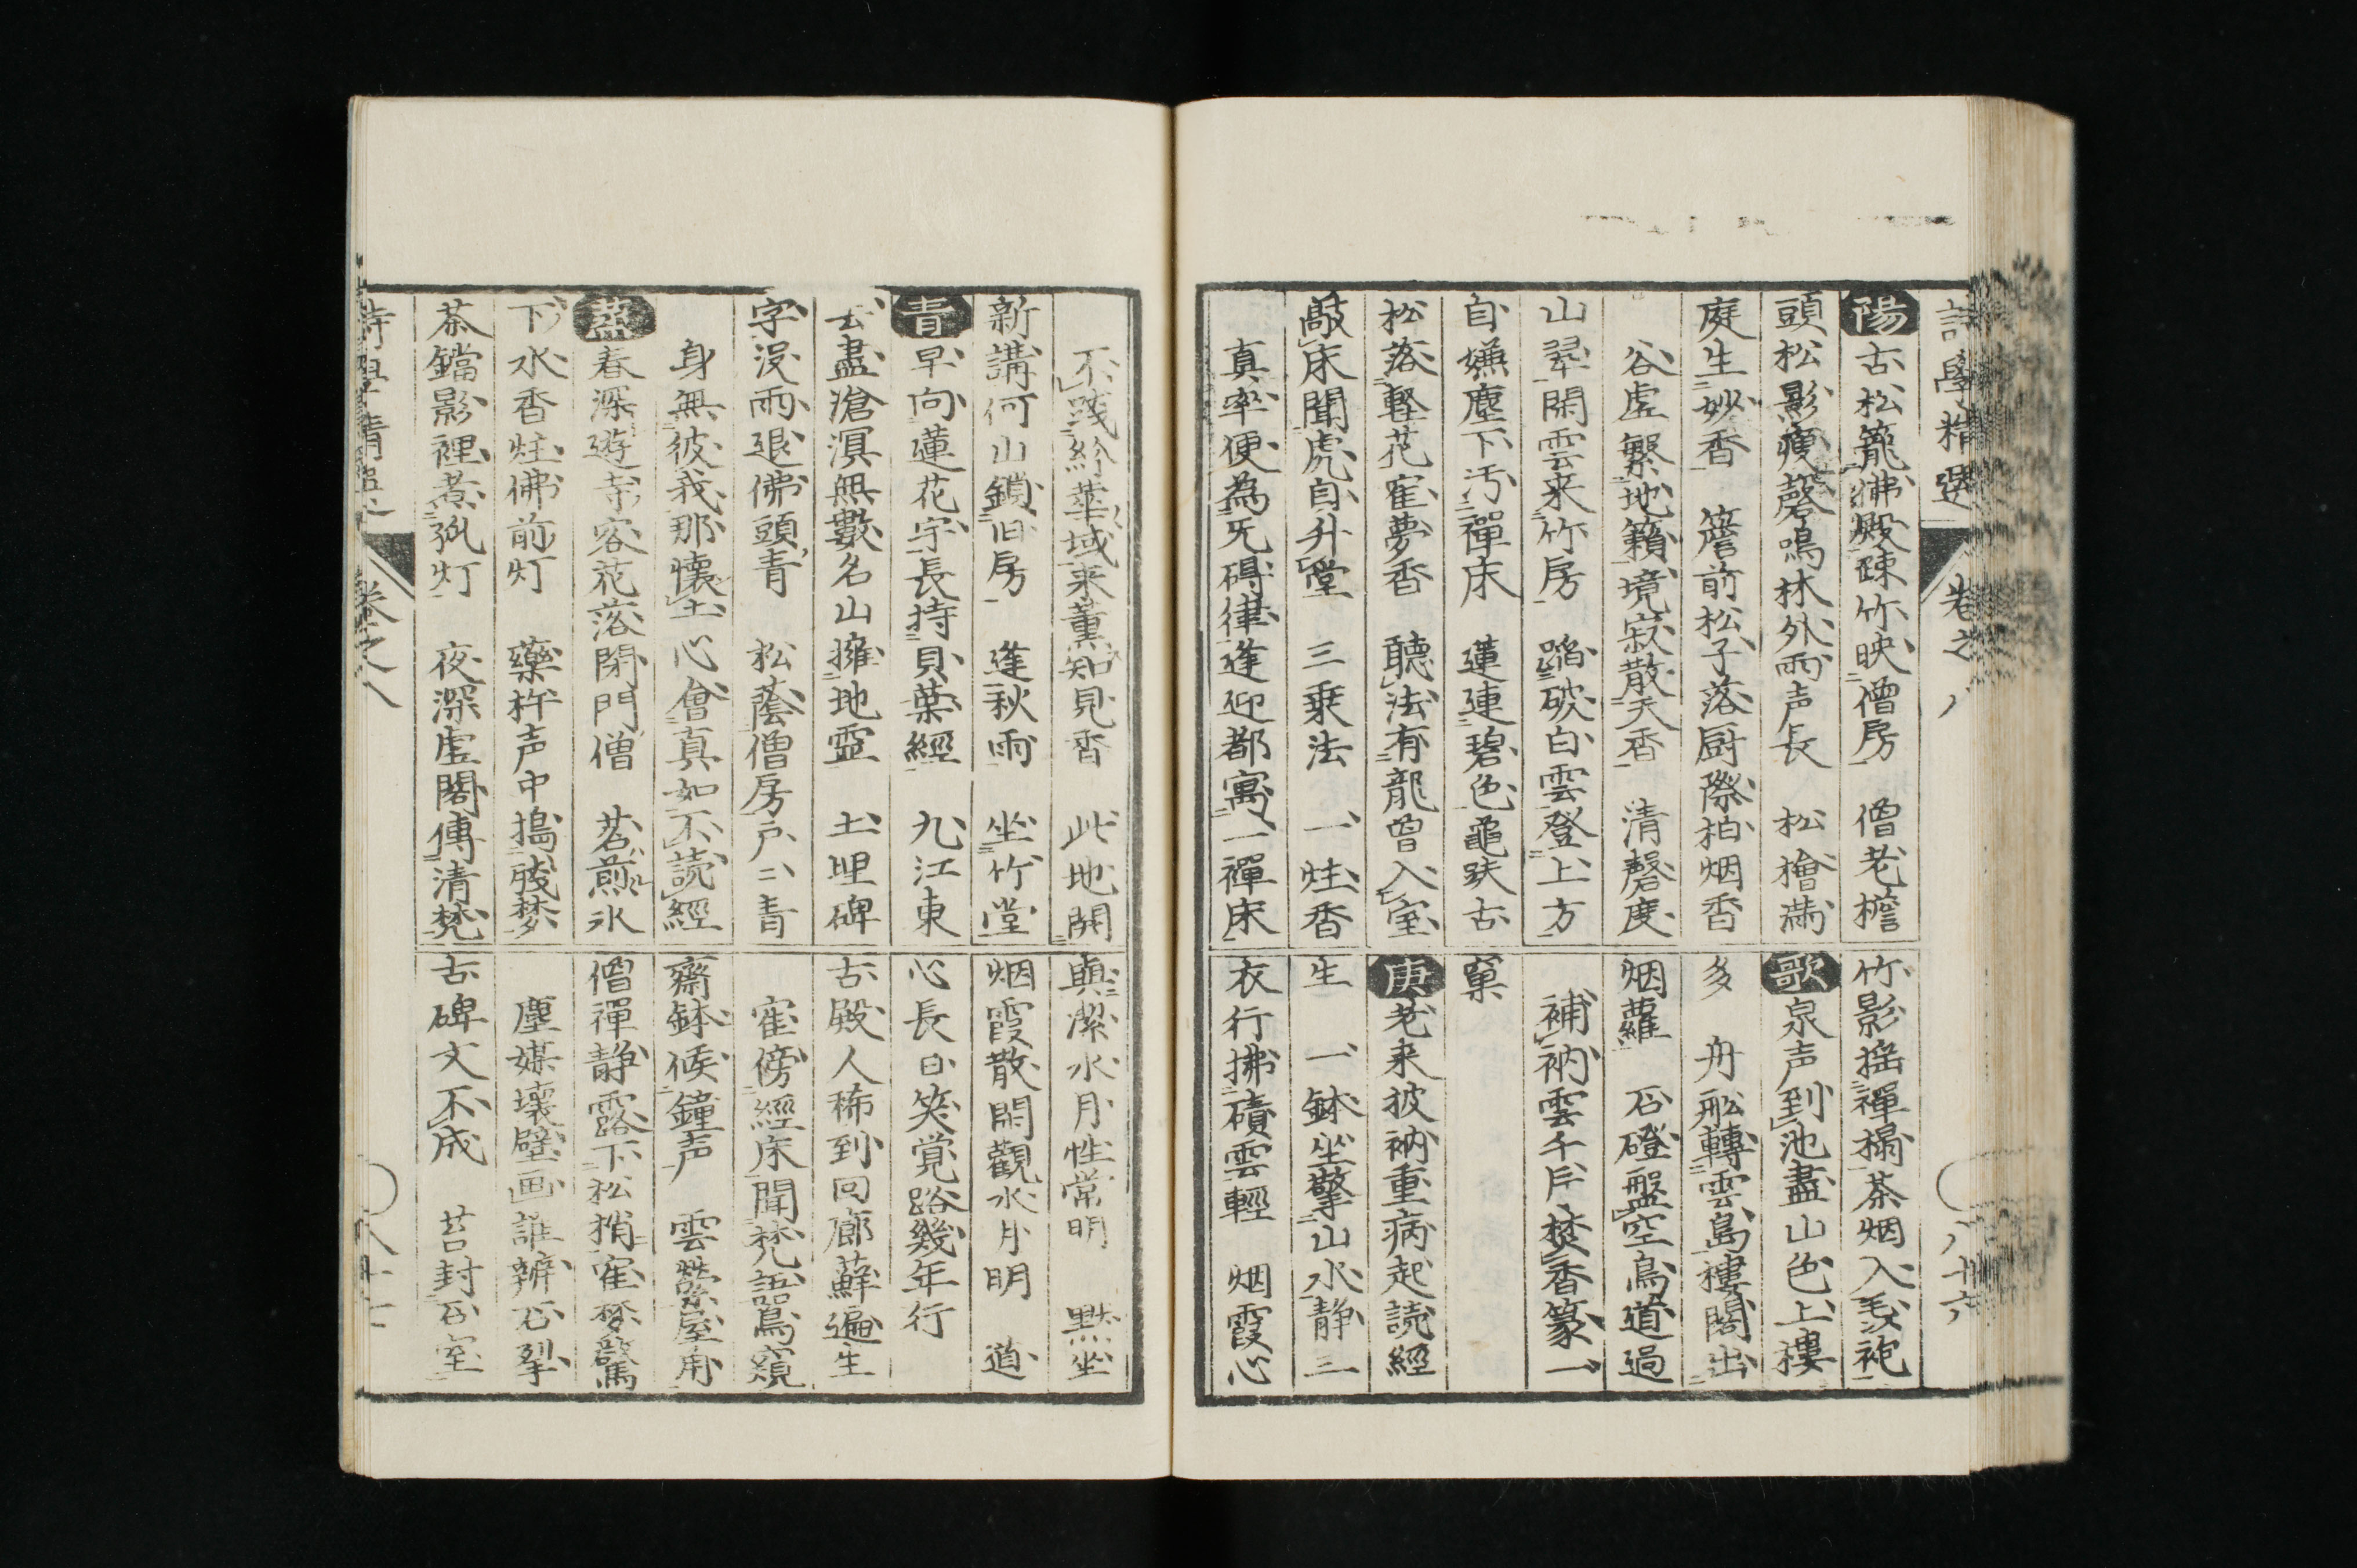 詩學精選 卷之八 八十六
陽 古松籠佛殿疎竹映僧房 僧老檐
頭松影痩磬鳴林外雨声長 松檜满
庭生妙香 簷前松子落厨際柏烟香
谷虚繁地籟境寂散天香 清磬度
山翠閑雲来竹房 踏破白雲登上方
自嫌塵下汚禪床 蓮連碧色龜趺古
松落輕花寉夢香 聽法有龍曾入室
敲床聞虎自升堂 三乗法 一炷香
真率便為旡碍律逢迎都寓一禪床
竹影揺禪榻茶烟入毳袍
歌 泉声到池盡山色上樓
多 舟舩轉雲島樓閣出
烟蘿 石磴盤空鳥道過
補衲雲千片焚香篆一
窠
庚 老来披衲重病起読經
生 一鉢坐擎山水静三
衣行拂磧雲輕 烟霞心
不践紛華域来薫知見香 此地開
新講何山鎖旧房 逢秋雨 坐竹堂
青 早向蓮花宇長持貝葉經 九江東
去盡滄溟無數名山擁地霊 土埋碑
字没雨退佛頭青 松蔭僧房戸二青
身無彼我那懷土心會真如不読經
蒸 春深遊寺客花落閉門僧 茗煎氷
下水香炷佛前灯 藥杵声中搗残梦
茶鐺影裡煮孤灯 夜深虚閣傳清梵
與潔水月性常明 黙坐
烟霞散閑觀水月明 道
心長日笑覚路幾年行
古殿人稀到回廊蘚遍生
寉傍經床聞梵語鴬窺
齋鉢候鐘声 雲縈屋角
僧禪静露下松梢寉梦驚
塵媒壞壁画誰辨石挈
古碑文不成 苔封石室
詩學精選 卷之八